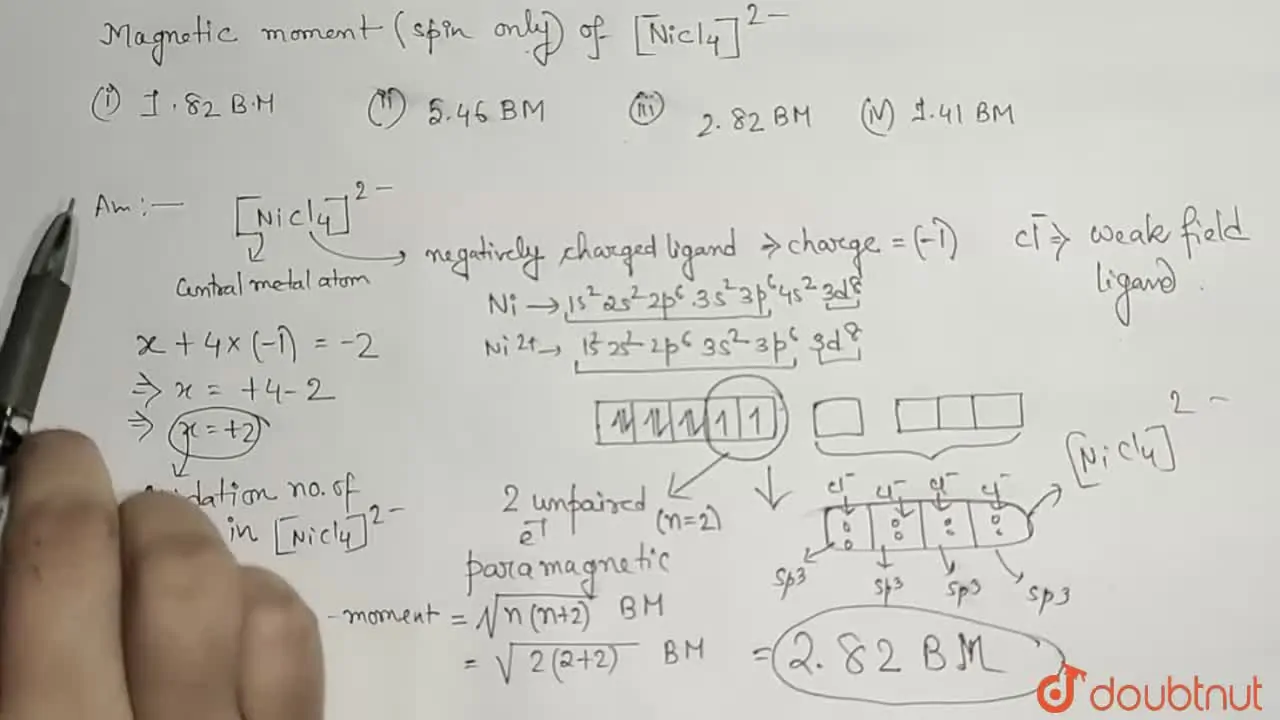 Magnetic moment (spin only) of [NiCl4]2-
(i) 1.82 B.M (ii) 5.46 BM (iii) 2.82 BM (iv) 1.41 BM
Ans:— [NiCl4]2-
negatively charged ligand ⇒ charge = (-1)
Cl- ⇒ weak field ligand.
Central metal atom
Ni → 1s2 2s2 2p6 3s2 3p6 4s2 3d8
Ni2+ → 1s2 2s2 2p6 3s2 3p6 3d8
x + 4×(-1) = -2
⇒ x = +4-2
⇒ x = +2
no. of
in [NiCl4]2-
2 unpaired e- (n=2)
paramagnetic
Cl- Cl- Cl- Cl-
[NiCl4]2-
sp3 sp3 sp3 sp3
-moment = √n(n+2) BM
= √2(2+2) BM = 2.82 BM
doubtnut